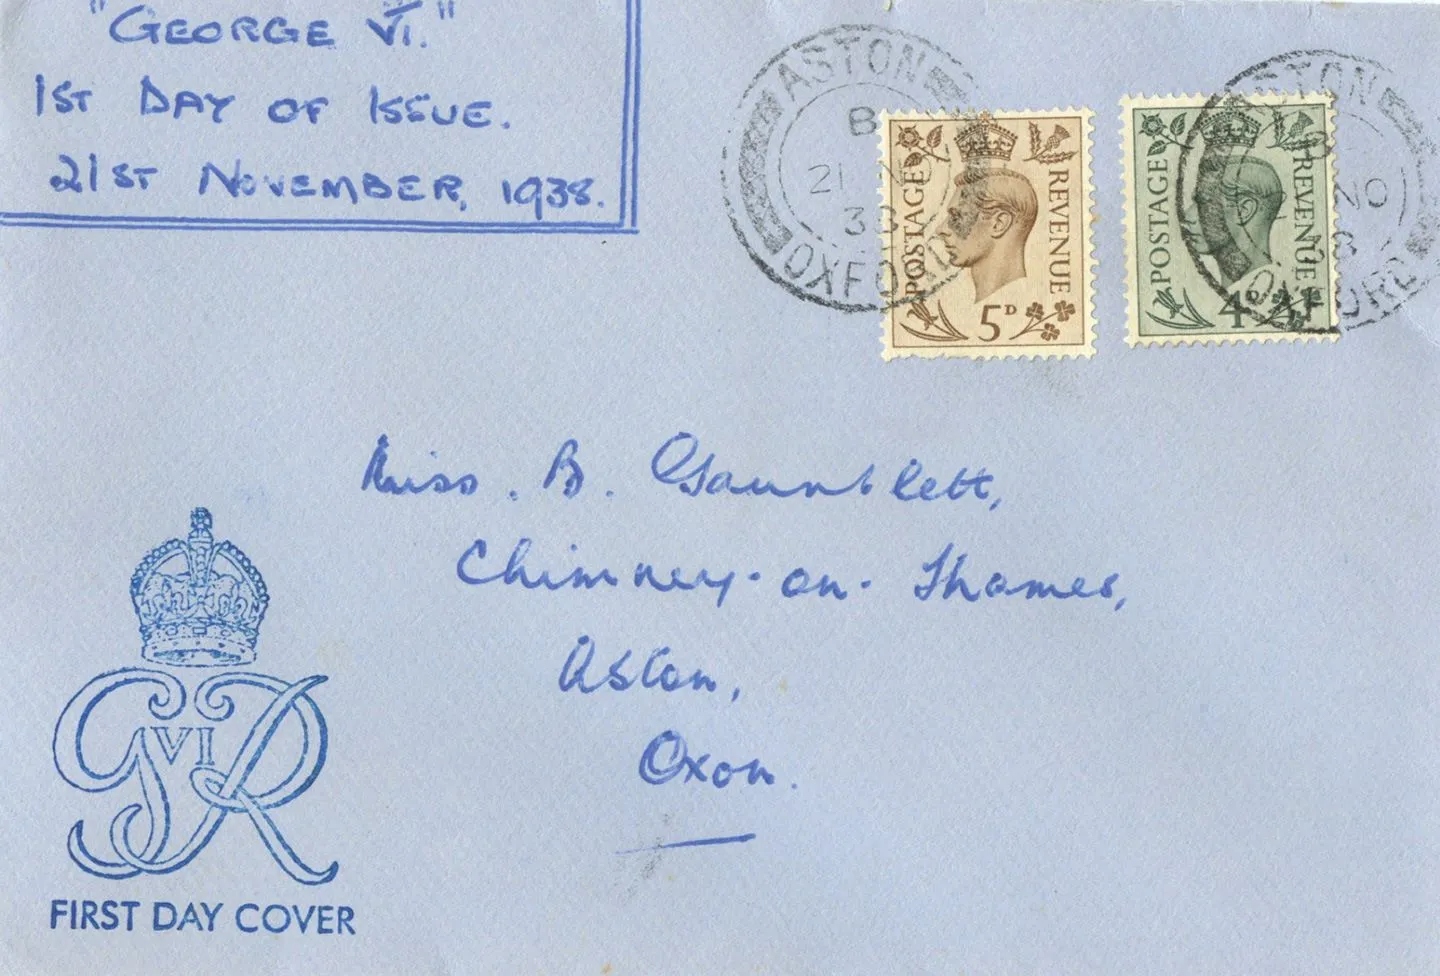 "GEORGE VI."
1ST DAY OF ISSUE.
21ST NOVEMBER, 1938.
ASTON
B
21 NO
38
OXFORD
POSTAGE
REVENUE
5D
ASTON
NO
OXFORD
POSTAGE
REVENUE
4D
Miss. B. Gauntlett,
Chimney-on-Thames,
Aston,
Oxon.
G VI R
FIRST DAY COVER